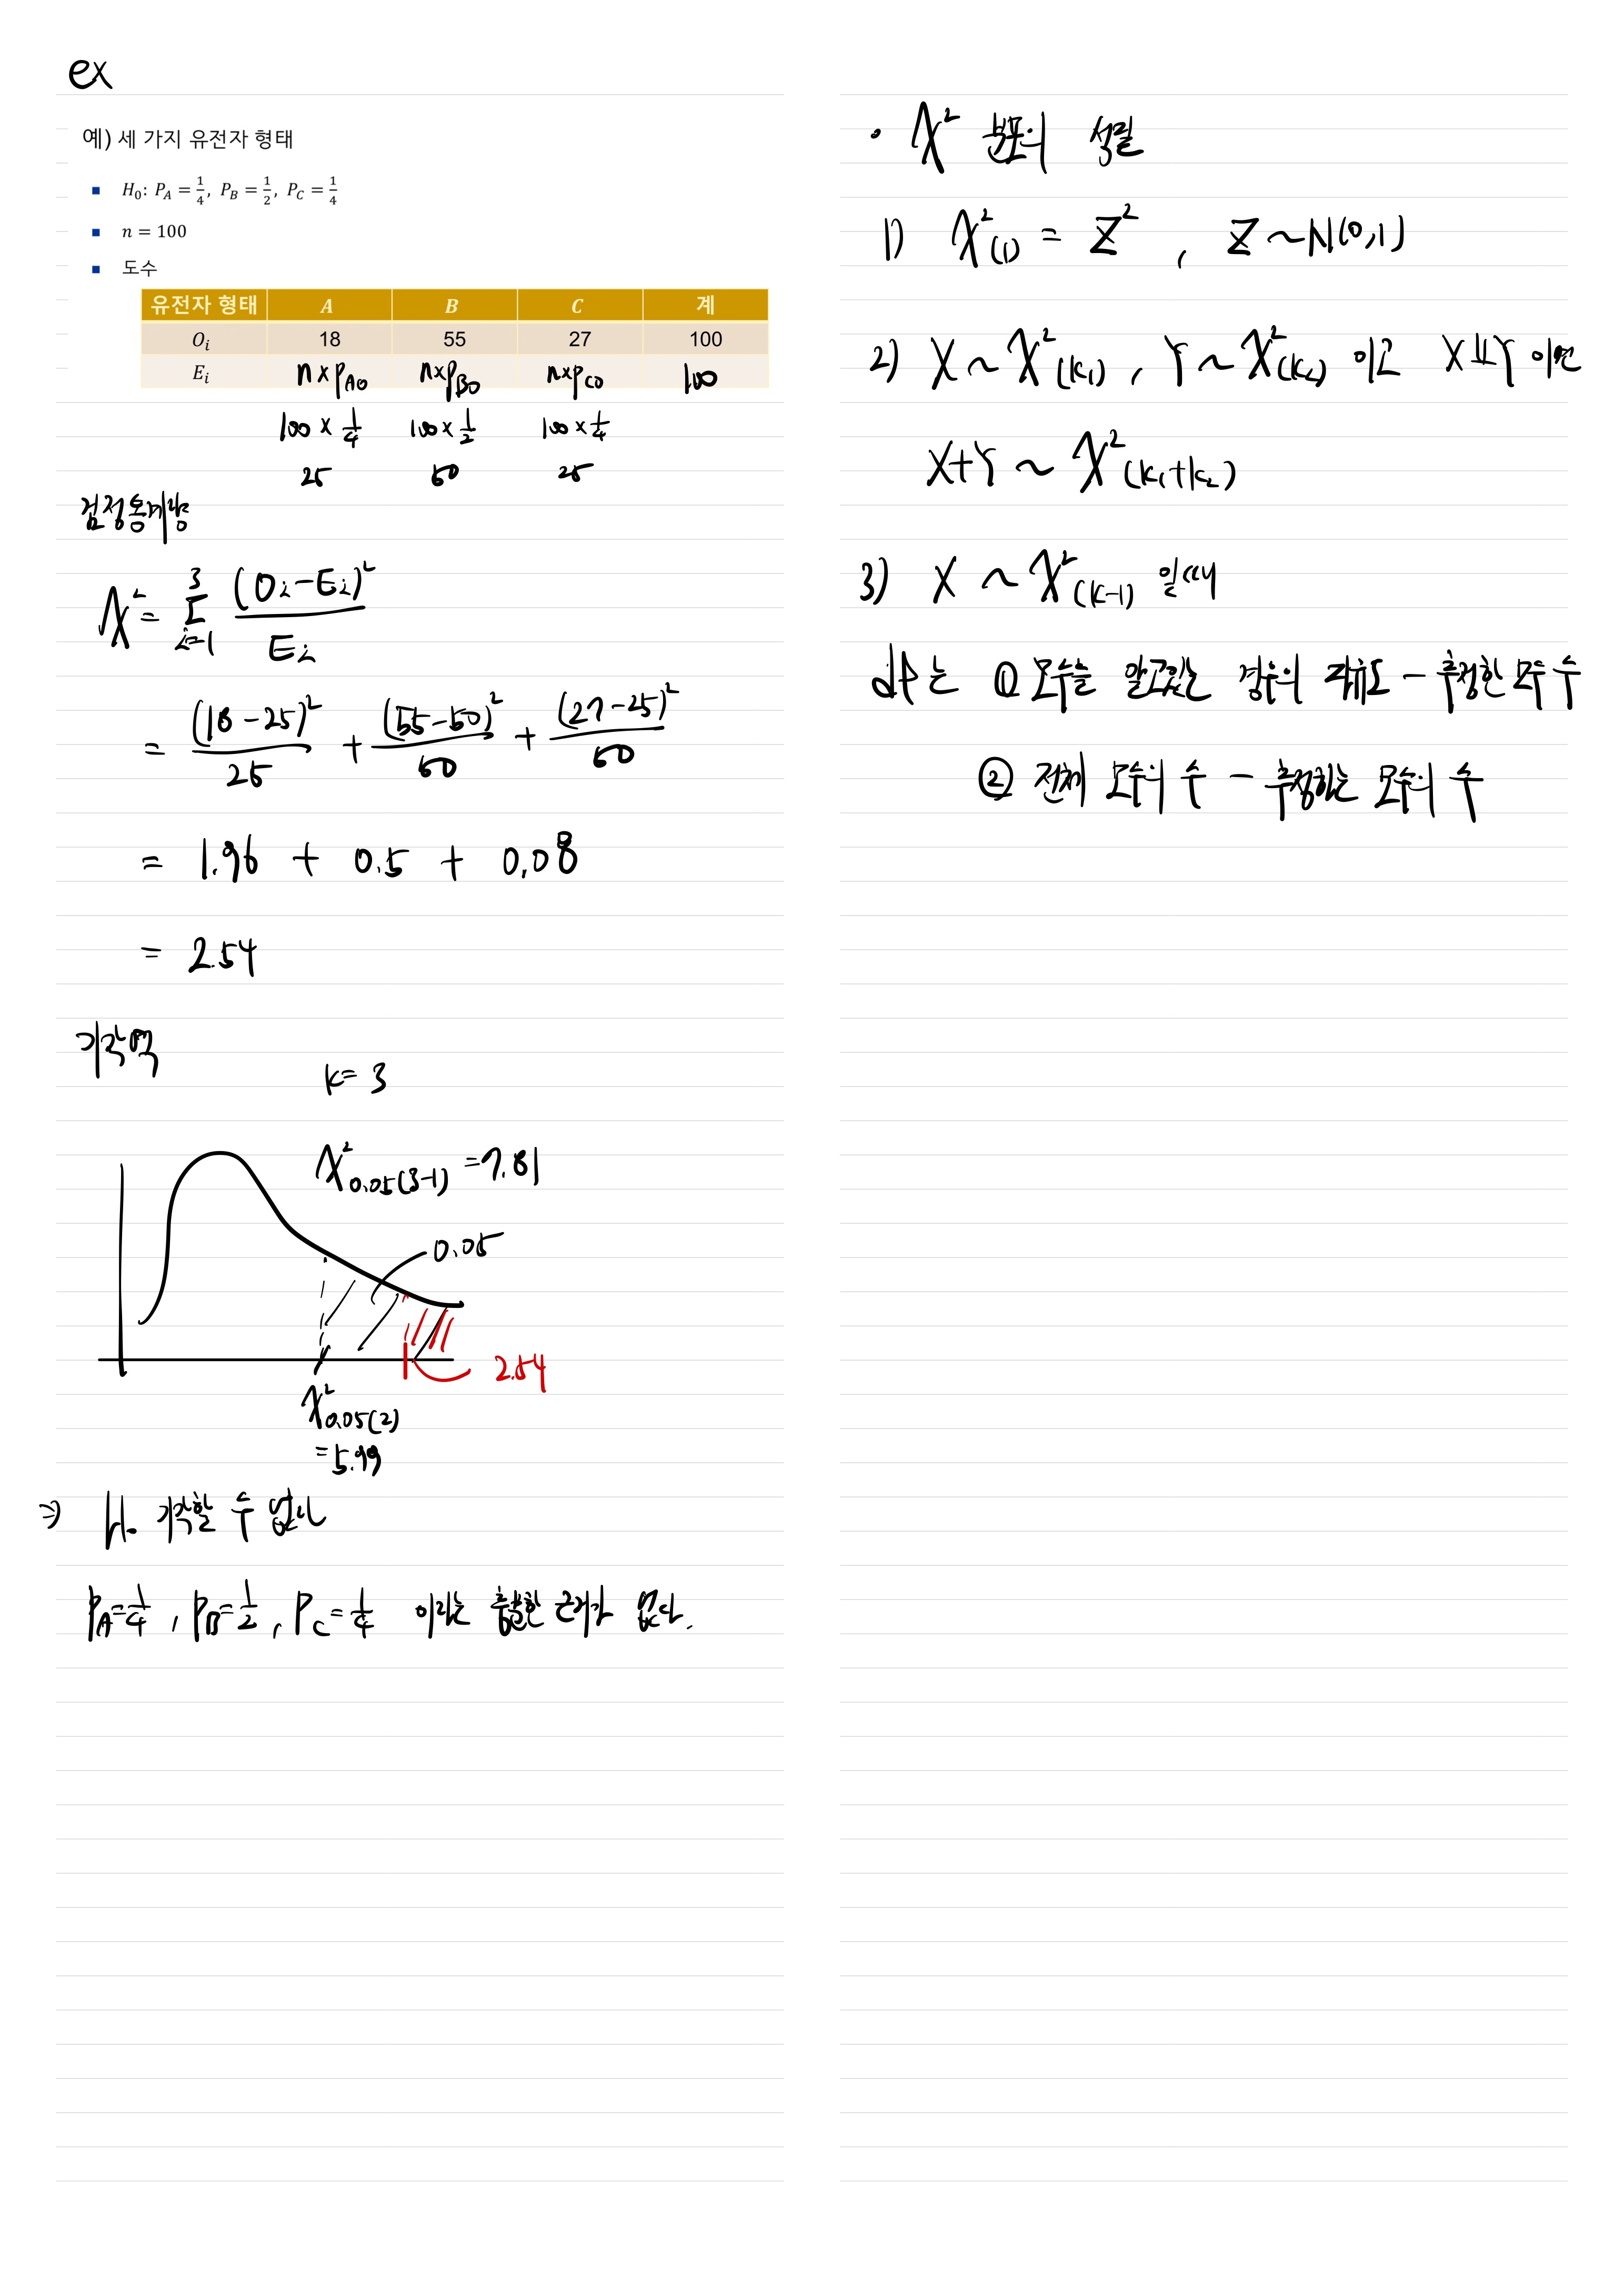 ex
예) 세 가지 유전자 형태
▪ H₀: P_A = 1/4, P_B = 1/2, P_C = 1/4
▪ n = 100
▪ 도수
유전자 형태 A B C 계
O_i 18 55 27 100
E_i n×P_A0 n×P_B0 n×P_C0 100
100 × 1/4 100 × 1/2 100 × 1/4
25 50 25
검정통계량
χ² = Σ_{i=1}^{3} (O_i − E_i)² / E_i
= (18 − 25)²/25 + (55 − 50)²/50 + (27 − 25)²/50
= 1.96 + 0.5 + 0.08
= 2.54
기각역
k = 3
χ²_0.05(3−1) = 7.81
0.05
2.54
χ²_0.05(2)
= 5.99
⇒ H₀ 기각할 수 없다
P_A = 1/4, P_B = 1/2, P_C = 1/4 이라는 충분한 근거가 없다.
· χ² 분포의 성질
1) χ²(1) = Z² , Z ~ N(0,1)
2) X ~ χ²(k₁) , Y ~ χ²(k₂) 이고 X⫫Y 이면
X+Y ~ χ²(k₁+k₂)
3) X ~ χ²(k−1) 일때
df는 ① 모수를 알고있는 경우의 자유도 − 추정한 모수 수
② 전체 모수의 수 − 추정하는 모수의 수